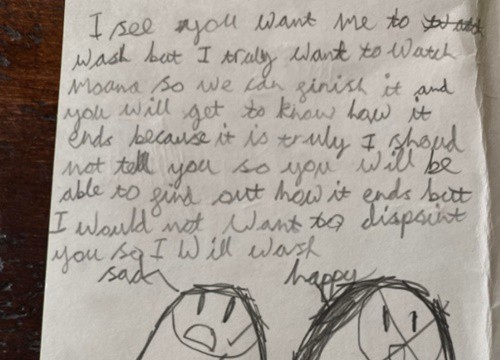 I see you want me to
wash but I truly want to watch
Moana so we can finish it and
you will get to know how it
ends because it is truly I shoud
not tell you so you will be
able to find out how it ends butt
I would not want to dispoint
you so I will wash
sad happy